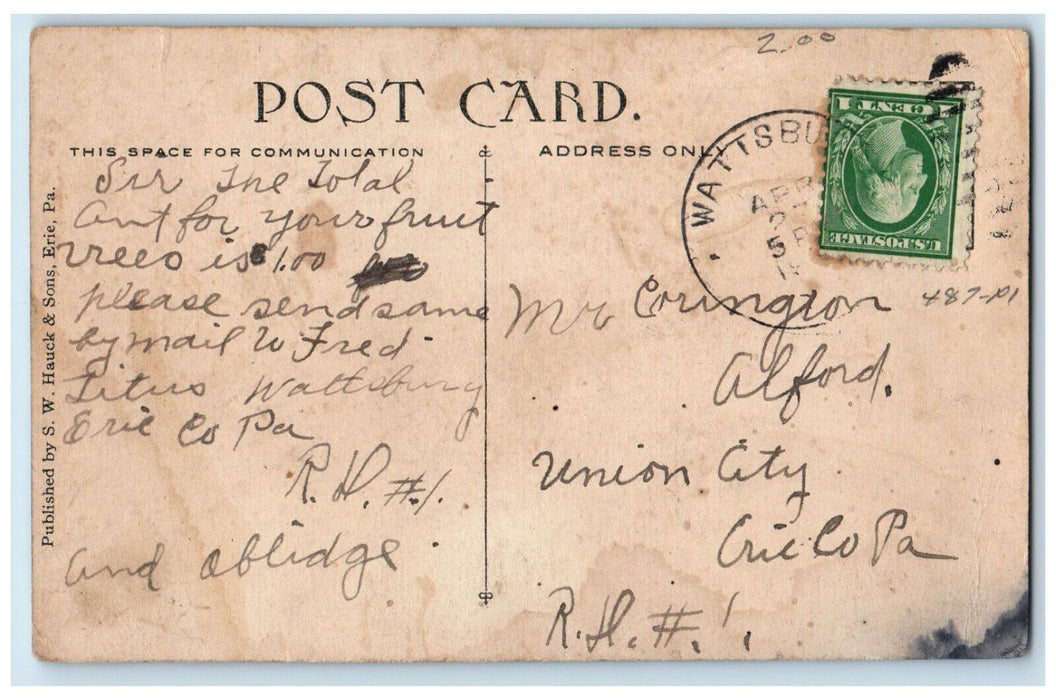 2.00
POST CARD.
THIS SPACE FOR COMMUNICATION
ADDRESS ONLY
Sir The Total
Amt for your fruit
trees is $1.00
please send same
by mail to Fred
Titus Wattsburg
Erie Co Pa
R.H.#1.
and oblidge
Published by S. W. Hauck & Sons, Erie, Pa.
WATTSBU
APR
2
5 P
1 CENT 1
U.S. POSTAGE
487-P1
Mr Corington
Alford.
Union City
Erie Co Pa
R.H.#1.